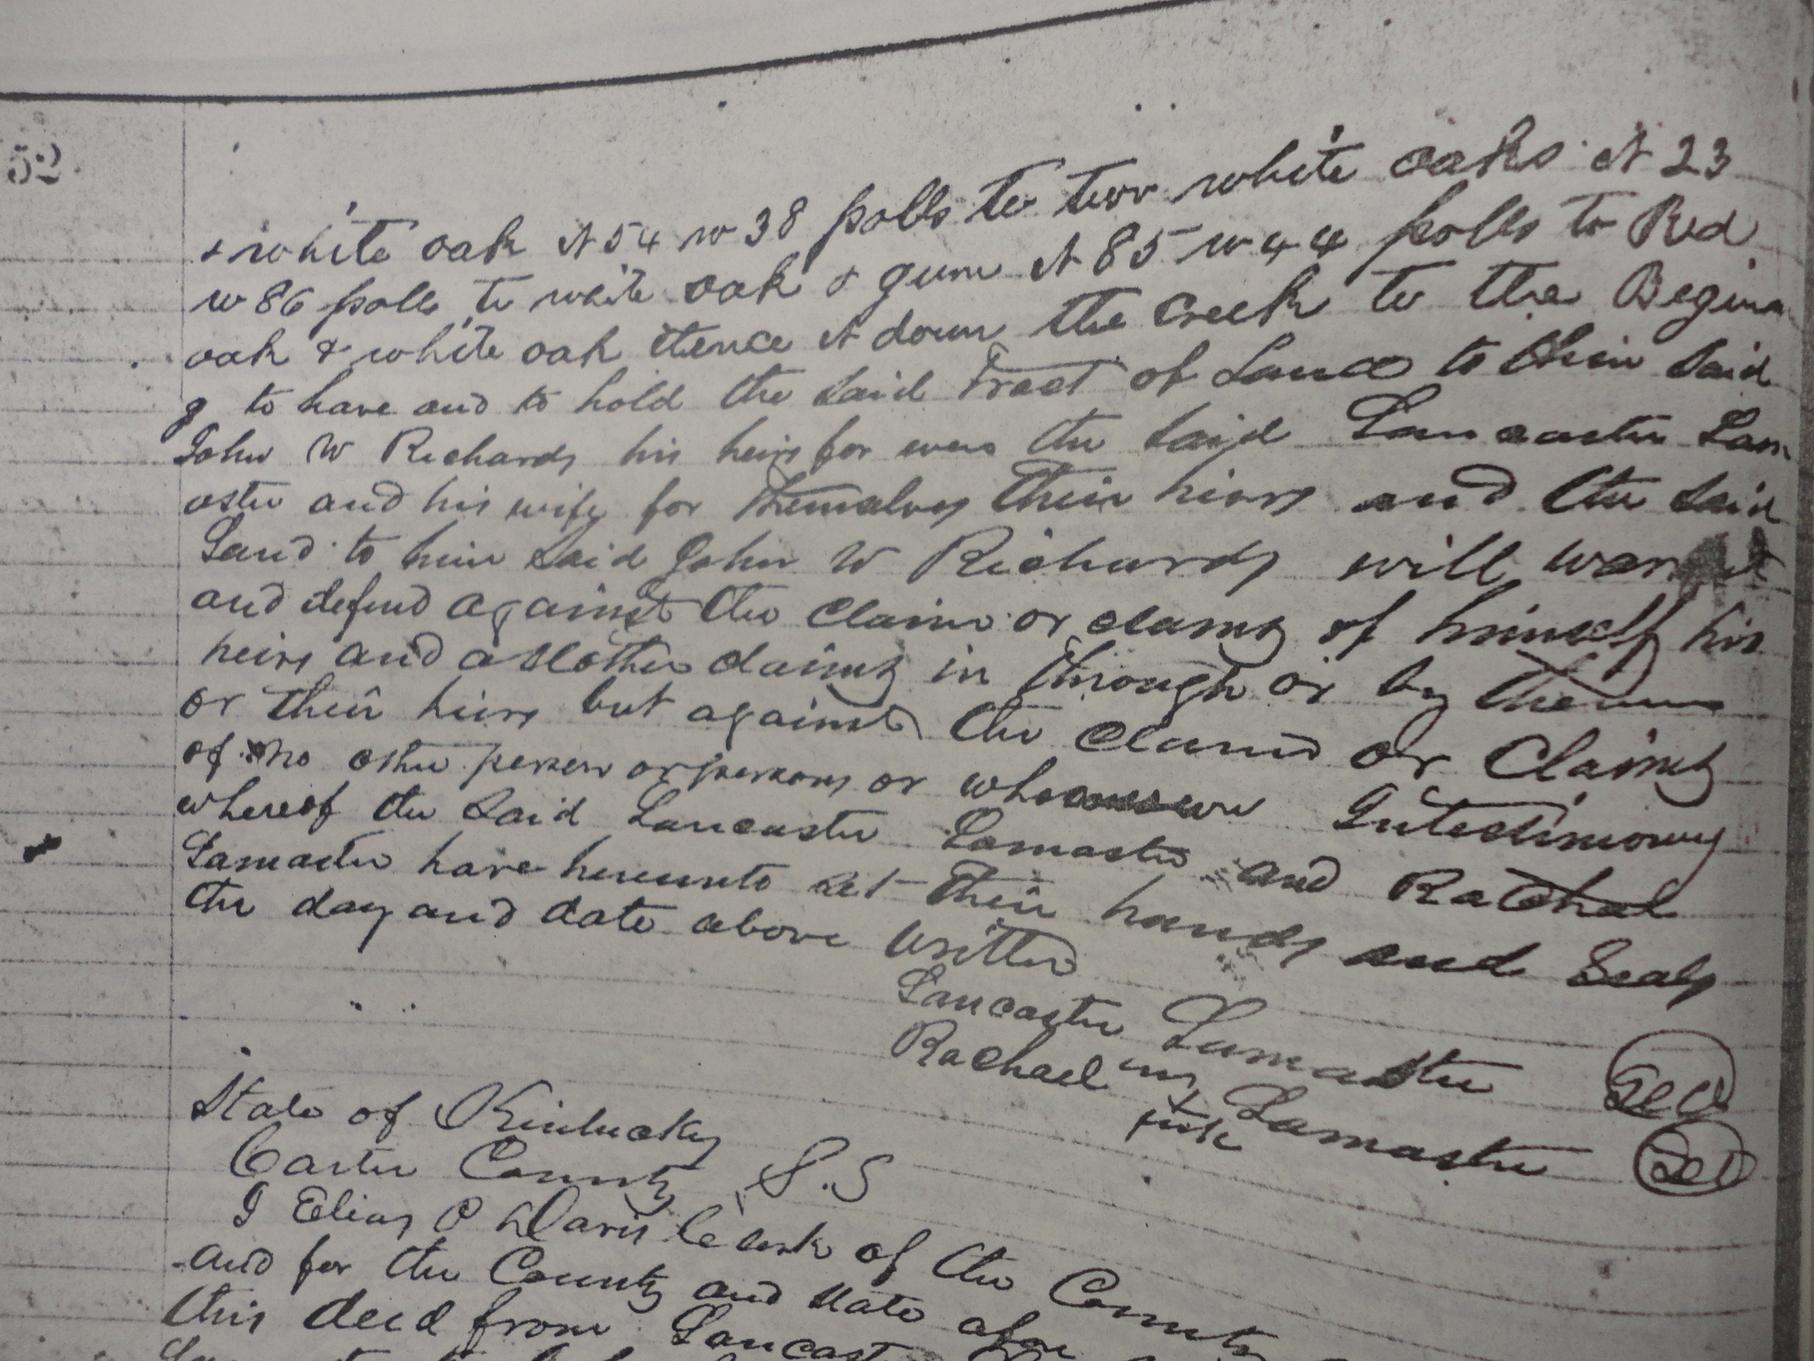 52.
& white oak N 54 w 38 polls to two white oaks N 23
w 86 polls to white oak & gum N 85 w 44 polls to Red
oak & white oak thence N down the Creek to the Begin
g to have and to hold the said Tract of Land to him said
John W Richards his heirs for ever the said Lancaster Lam
aster and his wife for themselves their heirs and the said
Land to him said John W Richards will
and defend against the claim or claims of himself his
heirs and all other claims in through or by them
or their heirs but against the claim or Claims
of no other person or persons or Intestimony
whereof the said Lancaster Lamaster and Rachal
Lamaster have hereunto set their hands and Seals
the day and date above written
Lancaster Lamaster Seal
Rachael Lamaster Seal
State of Kentucky
Carter County S.S
I Elias P Davis Clerk of the County
and for the County and State afore
this deed from Lancast